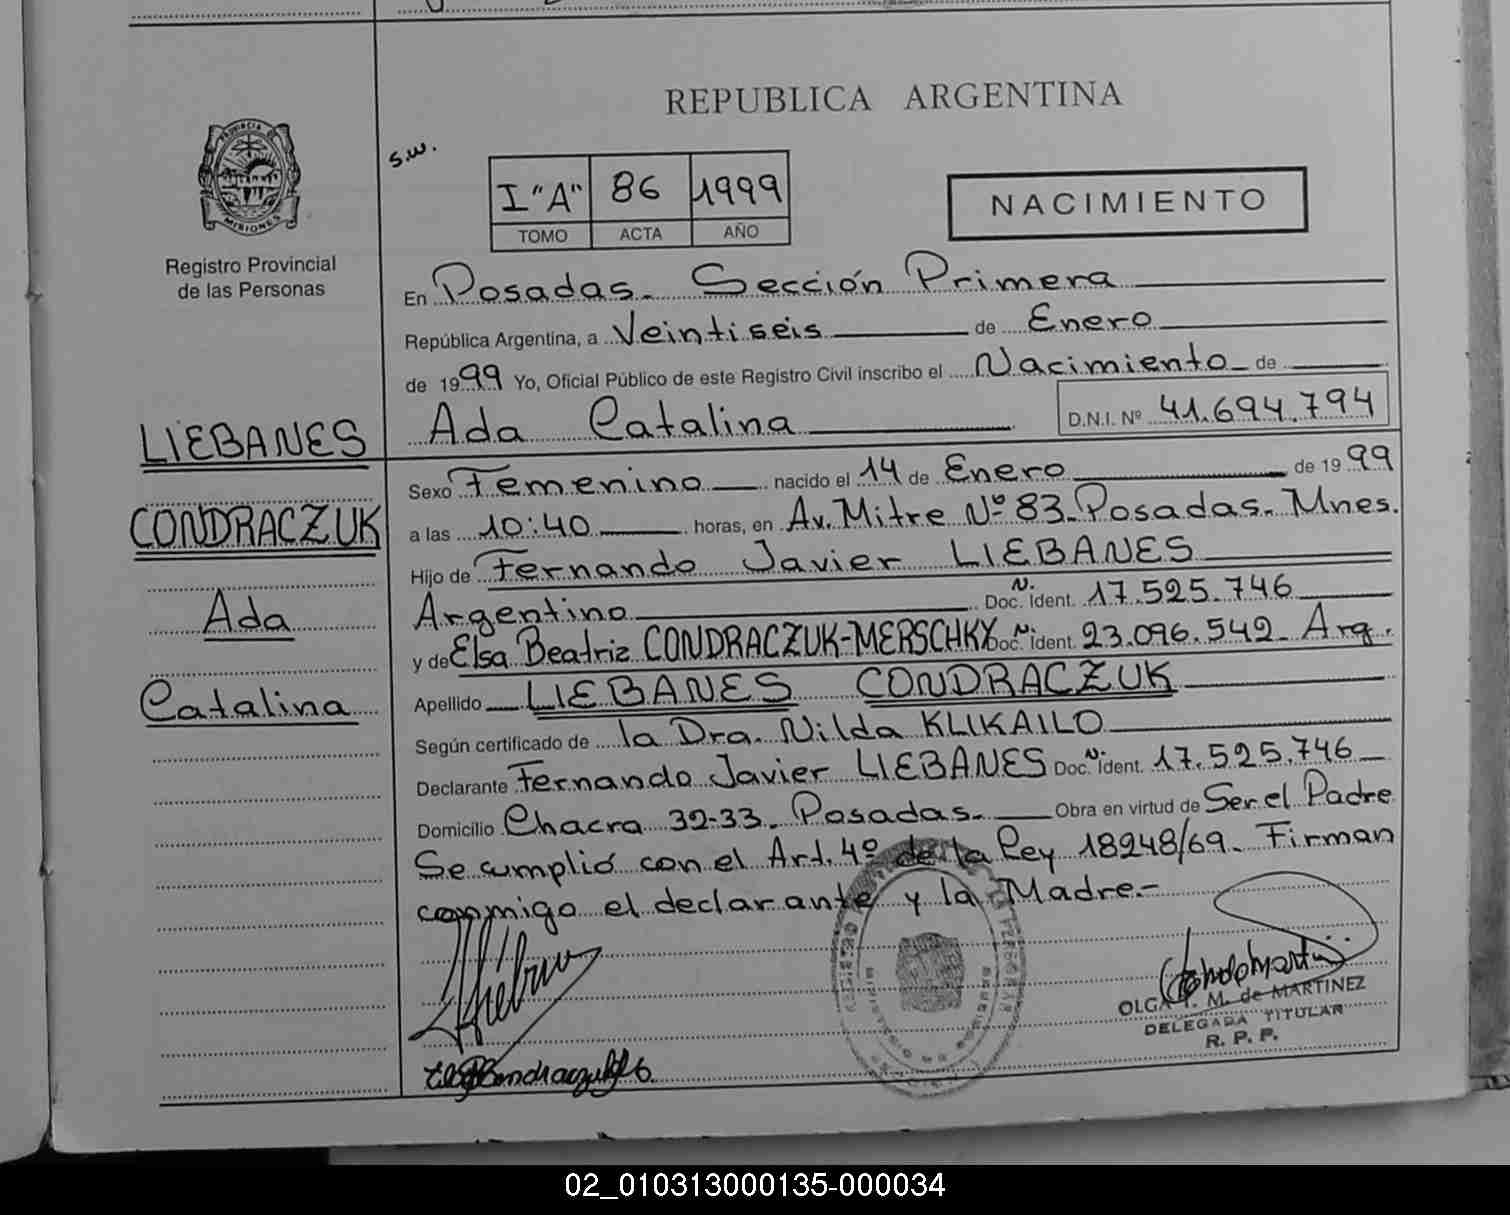 REPUBLICA ARGENTINA
s.w.
I "A" 86 1999
TOMO ACTA AÑO
NACIMIENTO
PROVINCIA DE
MISIONES
Registro Provincial
de las Personas
LIEBANES
CONDRACZUK
Ada
Catalina
En Posadas. Sección Primera
República Argentina, a Veintiseis de Enero
de 1999 Yo, Oficial Público de este Registro Civil inscribo el Nacimiento de
Ada Catalina D.N.I. Nº 41.694.794
Sexo Femenino nacido el 14 de Enero de 1999
a las 10:40 horas, en Av. Mitre Nº 83. Posadas. Mnes.
Hijo de Fernando Javier LIEBANES
Argentino Doc. N. Ident. 17.525.746
y de Elsa Beatriz CONDRACZUK-MERSCHKY Doc. N. Ident. 23.096.542 Arg.
Apellido LIEBANES CONDRACZUK
Según certificado de la Dra. Nilda KLIKAILO
Declarante Fernando Javier LIEBANES Doc. N. Ident. 17.525.746
Domicilio Chacra 32-33. Posadas. Obra en virtud de Ser el Padre
Se cumplió con el Art. 4º de la Ley 18248/69. Firman
conmigo el declarante y la Madre.-
OLGA T. M. de MARTINEZ
DELEGADA TITULAR
R. P. P.
02_010313000135-000034